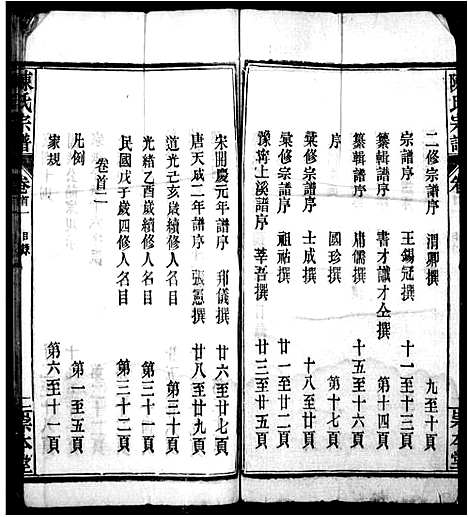 陳氏宗譜
卷
二修宗譜序 渭卿撰 九至十頁
宗譜序 王錫冠撰 十一至十三頁
纂輯譜序 書才讖才仝撰 第十四頁
纂輯譜序 庸儒撰 十五至十六頁
序 國珍撰 第十七頁
彙修譜序 士成撰 十八至廿頁
彙修譜序 祖祐撰 廿一至廿二頁
豫嵵上溪譜序 莘吾撰 廿三至廿五頁
宋開慶元年譜序 邦儀撰 廿六至廿七頁
唐天成二年譜序 張憲撰 廿八至廿九頁
道光己亥歲續修人名目 第三十頁
光緒乙酉歲續修人名目 第三十一頁
民國戊子歲四修人名目 第三十二頁
卷首二
凡例 第一至五頁
家規 第六至十一頁
陳氏宗譜
卷首 目錄
二
聚本堂